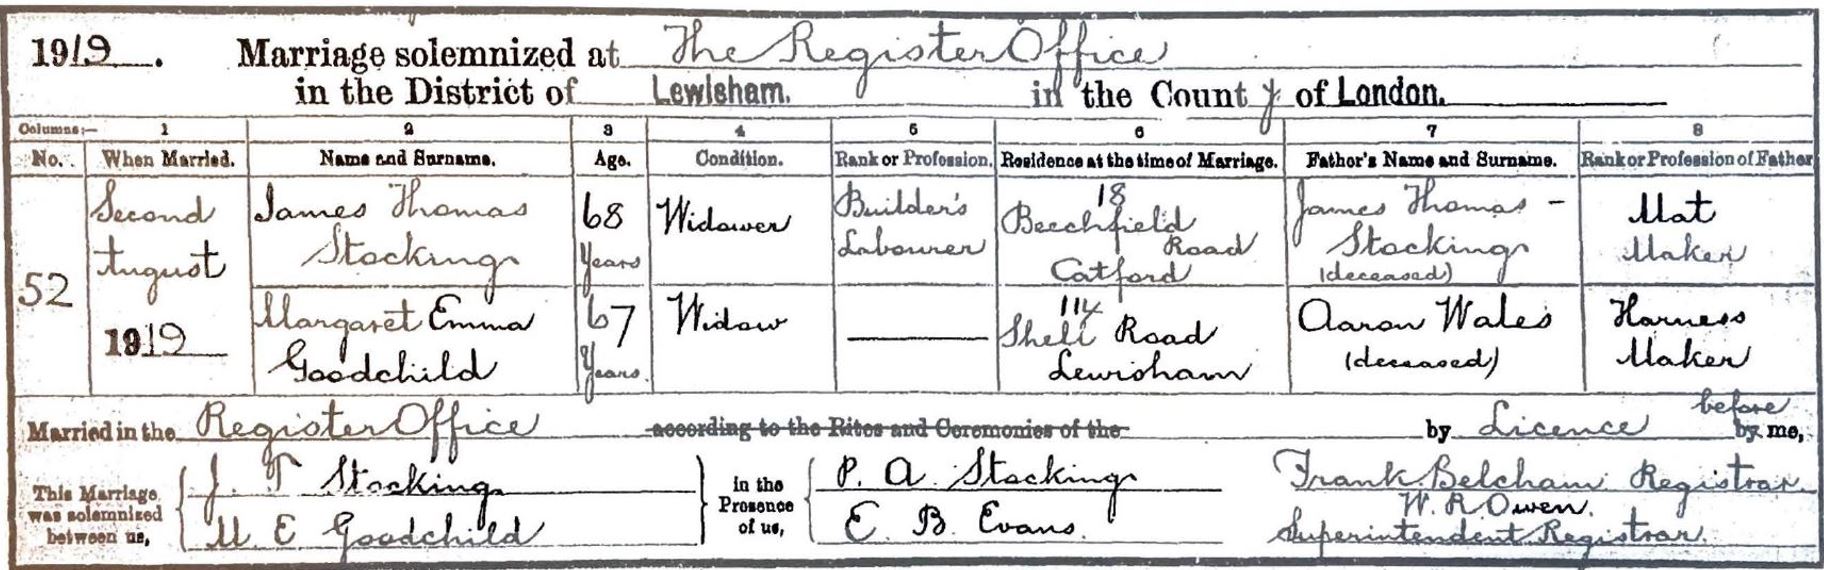 1919. Marriage solemnized at The Register Office
in the District of Lewisham. in the County of London.
Columns:— 1 2 3 4 5 6 7 8
No. When Married. Name and Surname. Age. Condition. Rank or Profession. Residence at the time of Marriage. Father's Name and Surname. Rank or Profession of Father
52
Second
August
1919
James Thomas
Stockings
68
Years
Widower
Builder's
Labourer
18
Beechfield
Road
Catford
James Thomas -
Stockings
(deceased)
Mat
Maker
Margaret Emma
Goodchild
67
Years
Widow
114
Shell Road
Lewisham
Aaron Wales
(deceased)
Harness
Maker
Married in the Register Office according to the Rites and Ceremonies of the by Licence before by me,
This Marriage
was solemnized
between us,
J. T Stockings
M. E Goodchild
in the
Presence
of us,
P. A. Stockings
E. B. Evans.
Frank Belcham Registrar.
W. R. Owen.
Superintendent Registrar.